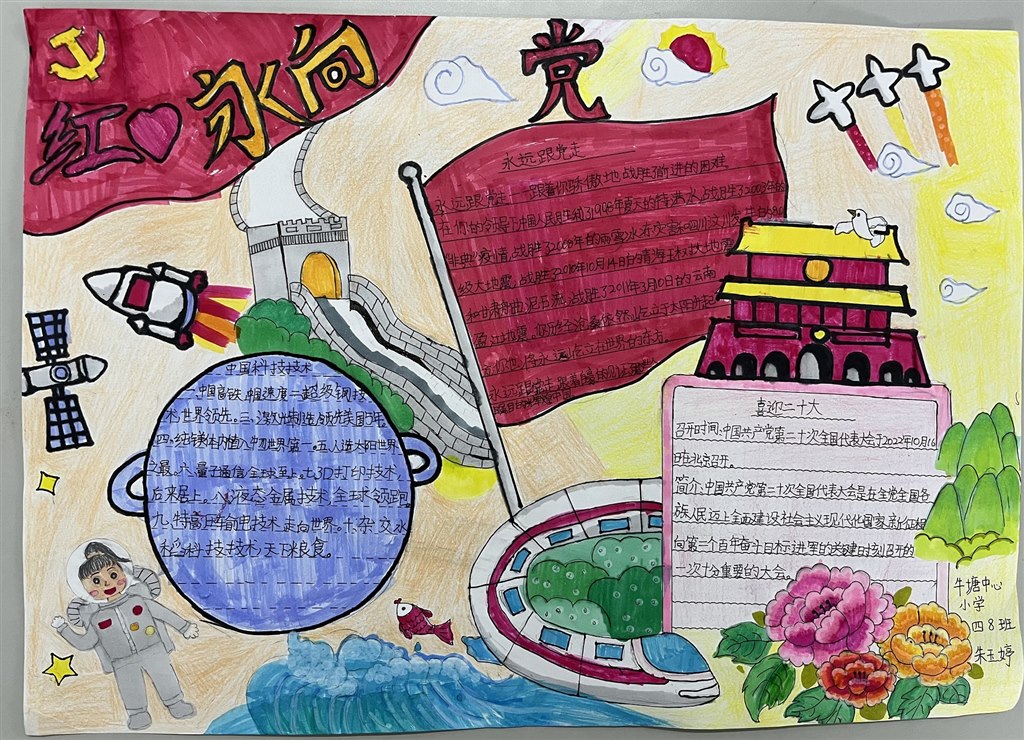 红心永向党
永远跟党走
永远跟党走——跟着你骄傲地战胜前进的困难
在你的领导下中国人民胜利了1998年夏天的特大洪水,战胜了2003年的
非典疫情,战胜了2008年的雨雪冰冻灾害和四川汶川发生的8.0
级大地震,战胜了2010年10月14日的青海玉树大地震
和甘肃舟曲泥石流,战胜了2011年3月10日的云南
盈江地震。
永远跟党走
中国科技技术
一.中国高铁,中国速度二超级钢技
术世界领先。三、激光制造领先美国15年
四.纯镁体内植入中世界第一。五人造太阳世界
之最。六、量子通信全球至上。七.3D打印技术,
后来居上。八、液态金属技术,全球领跑
九、特高压输电技术,走向世界。十、杂交水
稻科技技术天下粮食。
喜迎二十大
召开时间:中国共产党第二十次全国代表大会于2022年10月16
日在北京召开。
简介:中国共产党第二十次全国代表大会是在全党全国各
族人民迈上全面建设社会主义现代化国家新征程
向第二个百年奋斗目标进军的关键时刻召开的
一次十分重要的大会。
牛塘中心
小学
四8班
朱玉婷